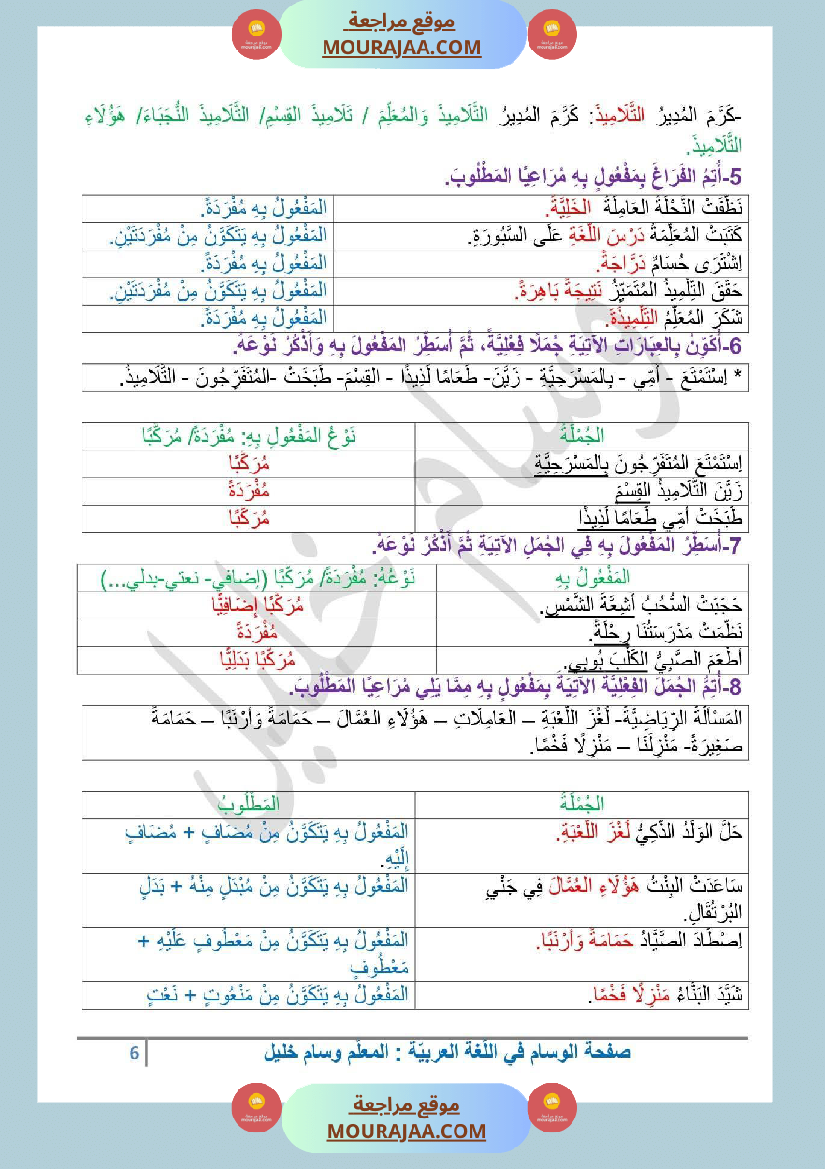 موقع مراجعة
MOURAJAA.COM
-كَرَّمَ المُدِيرُ التَّلَامِيذَ: كَرَّمَ المُدِيرُ التَّلَامِيذَ وَالمُعَلِّمَ / تَلَامِيذَ القِسْمِ/ التَّلَامِيذَ النُّجَبَاءَ/ هَؤُلَاءِ
التَّلَامِيذَ.
5-أُتِمُّ الفَرَاغَ بِمَفْعُولٍ بِهِ مُرَاعِيًا المَطْلُوبَ.
نَظَّفَتْ النَّحْلَةُ العَامِلَةُ الخَلِيَّةَ. المَفْعُولُ بِهِ مُفْرَدَةً.
كَتَبَتْ المُعَلِّمَةُ دَرْسَ اللُّغَةِ عَلَى السَّبُورَةِ. المَفْعُولُ بِهِ يَتَكَوَّنُ مِنْ مُفْرَدَتَيْنِ.
اِشْتَرَى حُسَامٌ دَرَّاجَةً. المَفْعُولُ بِهِ مُفْرَدَةً.
حَقَّقَ التِّلْمِيذُ المُتَمَيِّزُ نَتِيجَةً بَاهِرَةً. المَفْعُولُ بِهِ يَتَكَوَّنُ مِنْ مُفْرَدَتَيْنِ.
شَكَرَ المُعَلِّمُ التِّلْمِيذَةَ. المَفْعُولُ بِهِ مُفْرَدَةً.
6-أُكَوِّنُ بِالعِبَارَاتِ الآتِيَةِ جُمَلًا فِعْلِيَّةً، ثُمَّ أُسَطِّرُ المَفْعُولَ بِهِ وَأَذْكُرُ نَوْعَهُ.
* اِسْتَمْتَعَ - أُمِّي - بِالمَسْرَحِيَّةِ - زَيَّنَ- طَعَامًا لَذِيذًا - القِسْمَ- طَبَخَتْ -المُتَفَرِّجُونَ - التَّلَامِيذُ.
الجُمْلَةُ نَوْعُ المَفْعُولُ بِهِ: مُفْرَدَةً/ مُرَكَّبًا
اِسْتَمْتَعَ المُتَفَرِّجُونَ بِالمَسْرَحِيَّةِ مُرَكَّبًا
زَيَّنَ التَّلَامِيذُ القِسْمَ مُفْرَدَةً
طَبَخَتْ أُمِّي طَعَامًا لَذِيذًا مُرَكَّبًا
7-أُسَطِّرُ المَفْعُولَ بِهِ فِي الجُمَلِ الآتِيَةِ ثُمَّ أَذْكُرُ نَوْعَهُ.
المَفْعُولُ بِهِ نَوْعُهُ: مُفْرَدَةً/ مُرَكَّبًا (إضافي- نعتي-بدلي...)
حَجَبَتْ السُّحُبُ أَشِعَّةَ الشَّمْسِ. مُرَكَّبًا إِضَافِيًّا
نَظَّمَتْ مَدْرَسَتُنَا رِحْلَةً. مُفْرَدَةً
أَطْعَمَ الصَّبِيُّ الكَلْبَ بُوبِي. مُرَكَّبًا بَدَلِيًّا
8-أُتِمُّ الجُمَلَ الفِعْلِيَّةَ الآتِيَةَ بِمَفْعُولٍ بِهِ مِمَّا يَلِي مُرَاعِيًا المَطْلُوبَ.
المَسْأَلَةَ الرِّيَاضِيَّةَ- لُغْزَ اللُّعْبَةِ – العَامِلَاتِ – هَؤُلَاءِ العُمَّالَ – حَمَامَةً وَأَرْنَبًا – حَمَامَةً
صَغِيرَةً- مَنْزِلَنَا – مَنْزِلًا فَخْمًا.
الجُمْلَةُ المَطْلُوبُ
حَلَّ الوَلَدُ الذَّكِيُّ لُغْزَ اللُّعْبَةِ. المَفْعُولُ بِهِ يَتَكَوَّنُ مِنْ مُضَافٍ + مُضَافٍ
إِلَيْهِ.
سَاعَدَتْ البِنْتُ هَؤُلَاءِ العُمَّالَ فِي جَنْيِ المَفْعُولُ بِهِ يَتَكَوَّنُ مِنْ مُبْدَلٍ مِنْهُ + بَدَلٍ
البُرْتُقَالِ.
اِصْطَادَ الصَّيَّادُ حَمَامَةً وَأَرْنَبًا. المَفْعُولُ بِهِ يَتَكَوَّنُ مِنْ مَعْطُوفٍ عَلَيْهِ +
مَعْطُوفٍ
شَيَّدَ البَنَّاءُ مَنْزِلًا فَخْمًا. المَفْعُولُ بِهِ يَتَكَوَّنُ مِنْ مَنْعُوتٍ + نَعْتٍ
صفحة الوسام في اللّغة العربيّة : المعلّم وسام خليل 6
موقع مراجعة
MOURAJAA.COM
وسام خليل